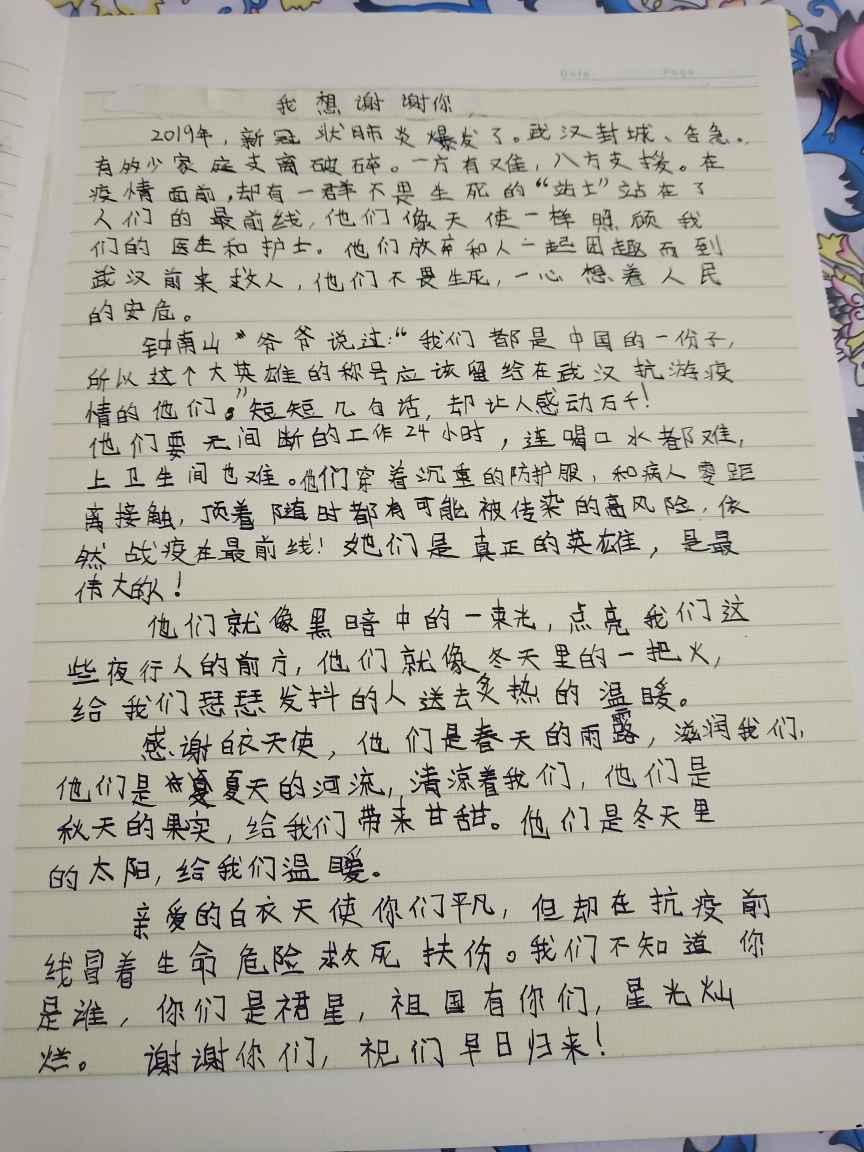 Date Page
我想谢谢你
2019年,新冠状肺炎爆发了。武汉封城、告急。
有多少家庭支离破碎。一方有难,八方支援。在
疫情面前,却有一群不畏生死的“站士”站在了
人们的最前线,他们像天使一样照顾我
们的医生和护士。他们放弃和人一起团趣而到
武汉前来救人,他们不畏生死,一心想着人民
的安危。
钟南山 爷爷说过:“我们都是中国的一份子,
所以这个大英雄的称号应该留给在武汉抗游疫
情的他们。”短短几句话,却让人感动万千!
他们要无间断的工作24小时,连喝口水都难,
上卫生间也难。他们穿着沉重的防护服,和病人零距
离接触,顶着随时都有可能被传染的高风险,依
然战疫在最前线!她们是真正的英雄,是最
伟大的人!
他们就像黑暗中的一束光,点亮我们这
些夜行人的前方,他们就像冬天里的一把火,
给我们瑟瑟发抖的人送去炙热的温暖。
感谢白衣天使,他们是春天的雨露,滋润我们,
他们是夏天的河流,清凉着我们,他们是
秋天的果实,给我们带来甘甜。他们是冬天里
的太阳,给我们温暖。
亲爱的白衣天使你们平凡,但却在抗疫前
线冒着生命危险救死扶伤。我们不知道你
是谁,你们是裙星,祖国有你们,星光灿
烂。 谢谢你们,祝们早日归来!